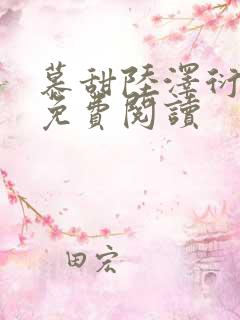 慕甜陸澤衍
免費閱讀
田宏